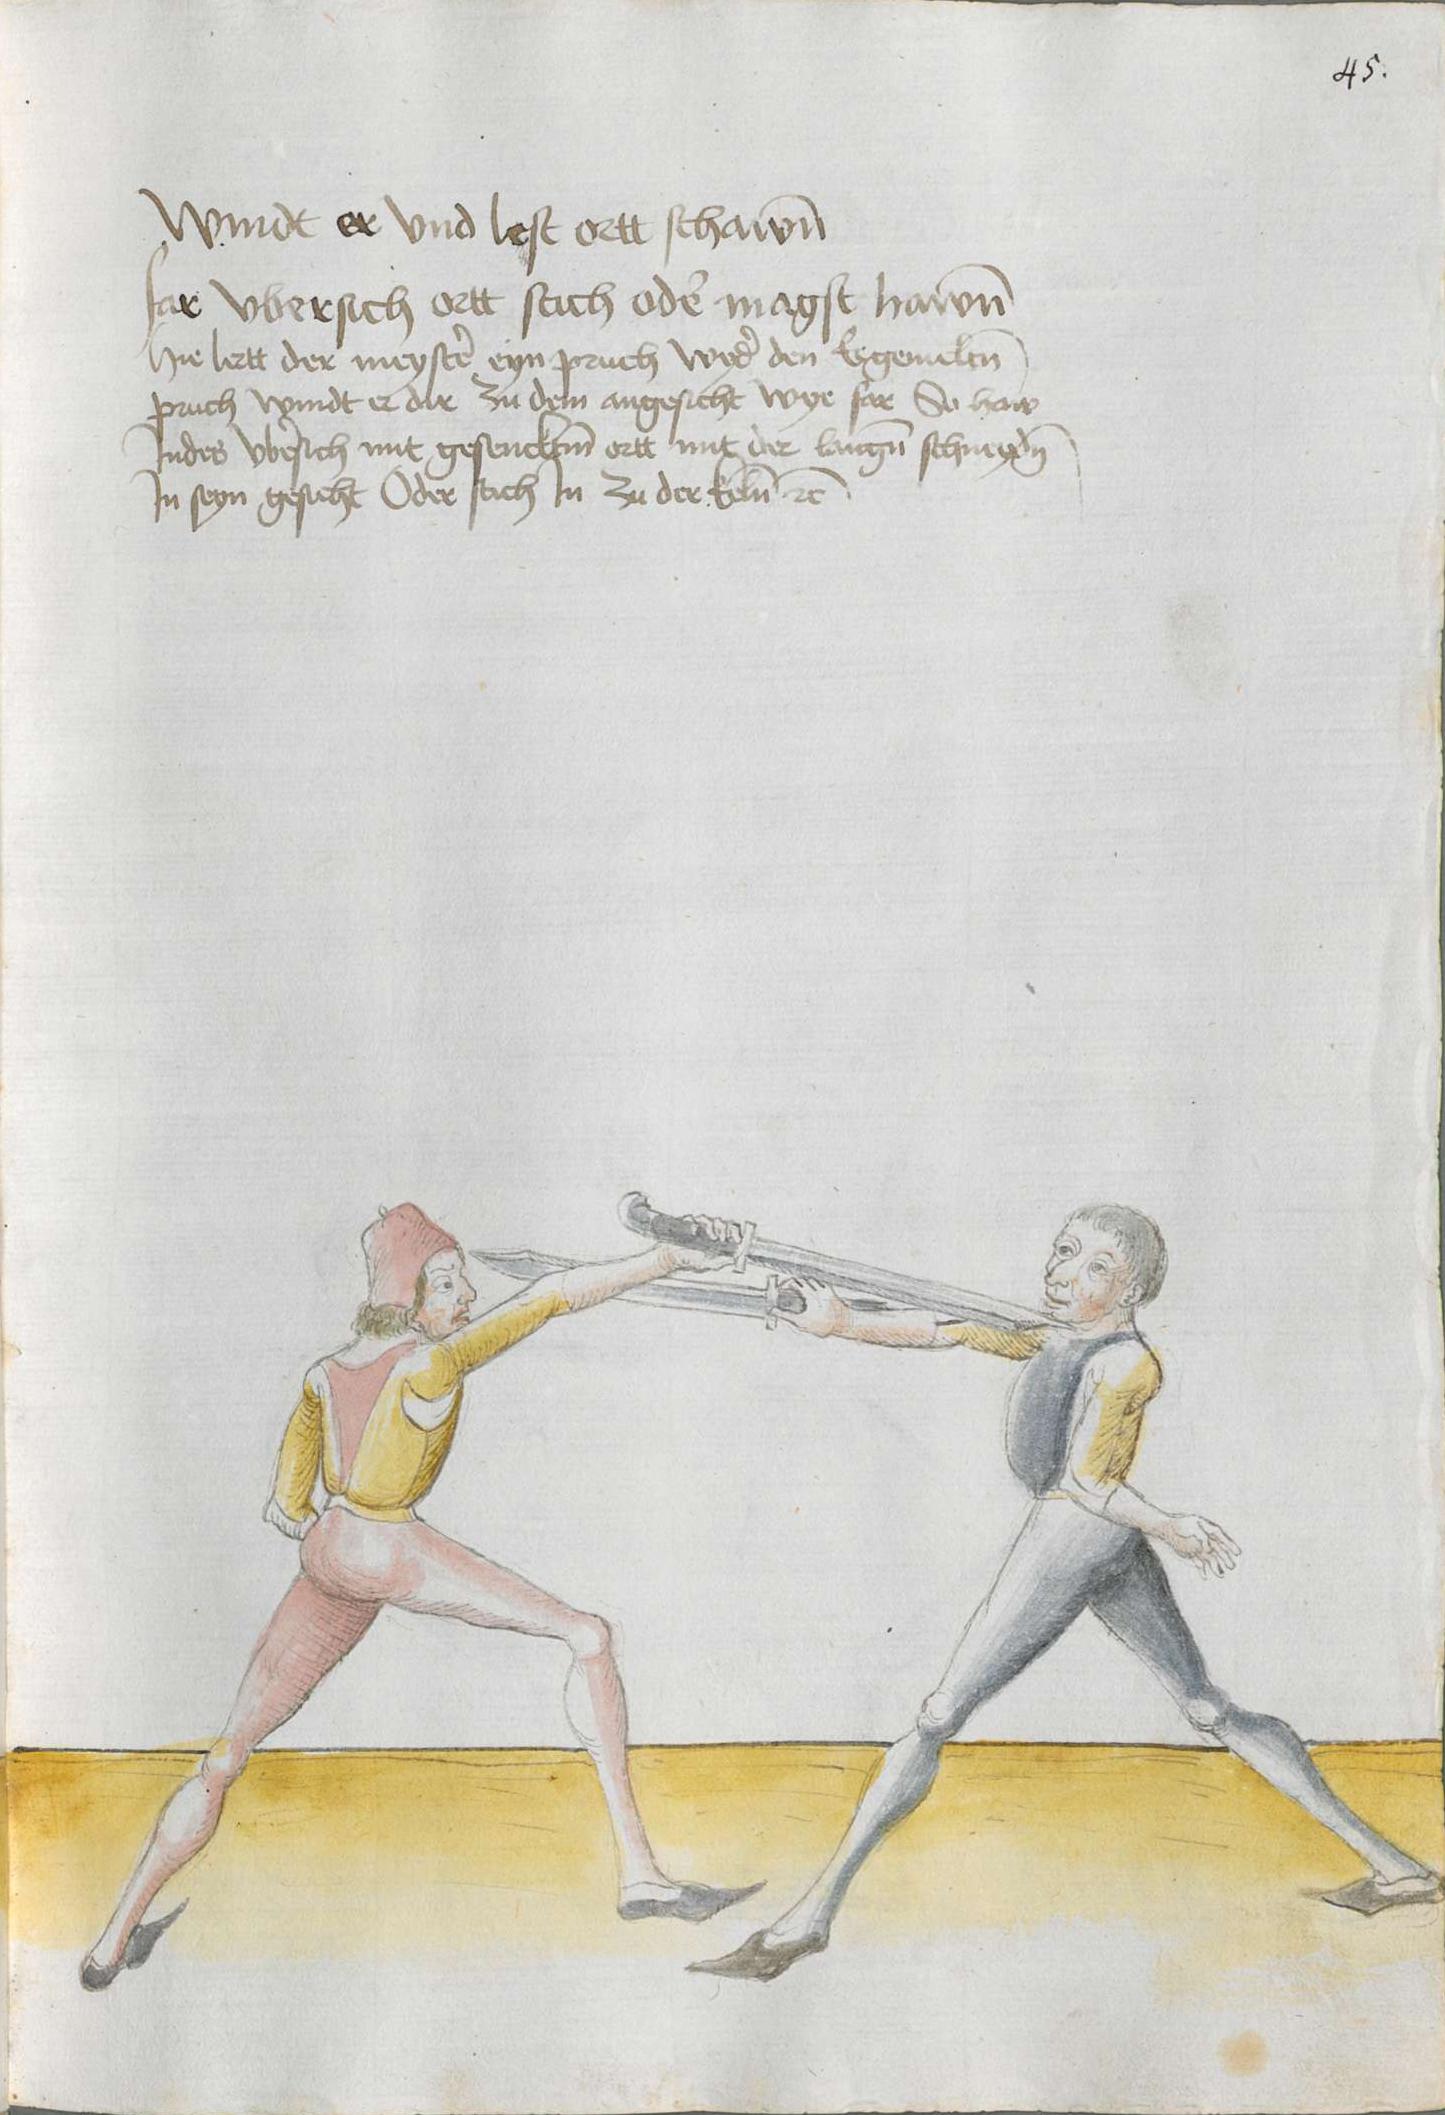 45.
Windt er vnd lest ortt schawn̄
far vbersich ortt stich oder̄ magst hawn̄
hie lertt der meyster̄ eyn pruch wyder̄ den
pruch windt er dir zu dem angesicht wye for So haw
Indes vbersich mit gesencktm̄ ortt mit der langn̄ schneydn̄
In seyn gesicht Oder stich In zu der keln̄ ⁊c̄